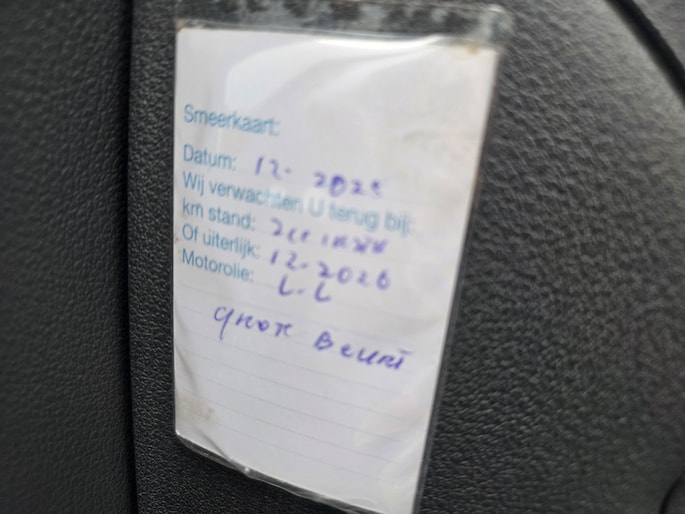 Smeerkaart:
Datum: 12-2025
Wij verwachten U terug bij:
km stand:
Of uiterlijk: 12-2026
Motorolie: L-L
groot Beurt